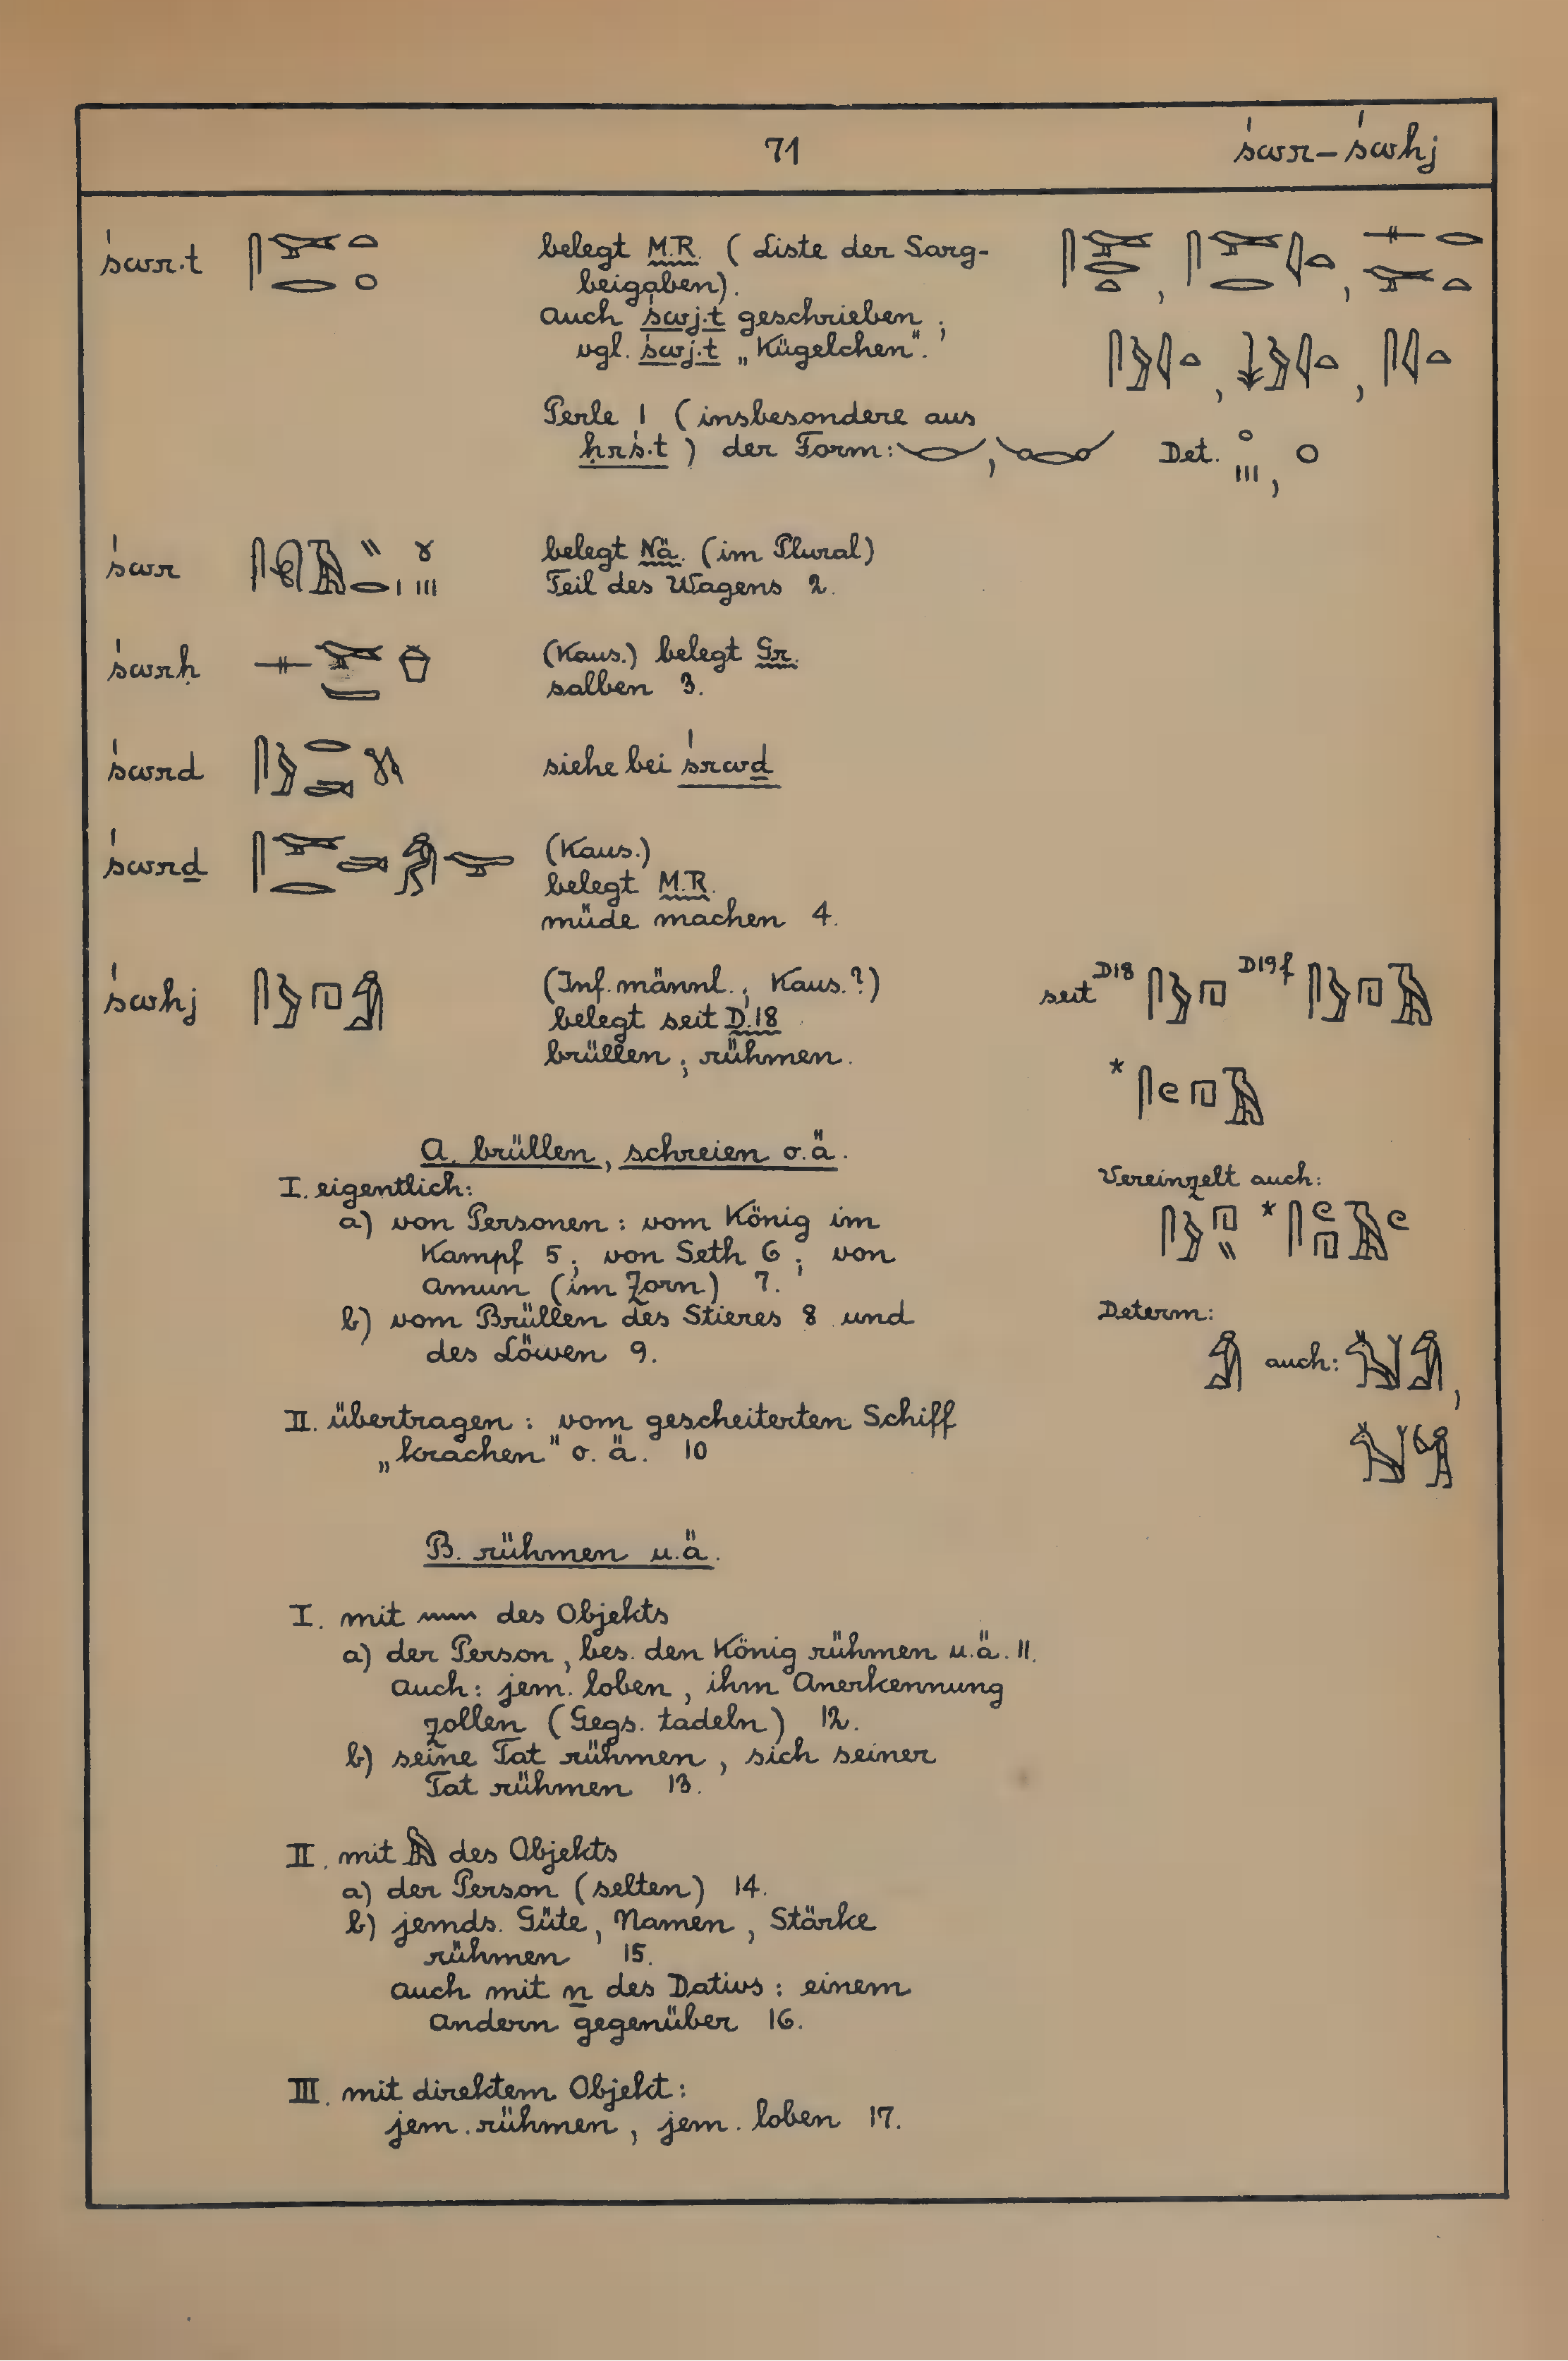 71 śwr – śwhj
śwr.t
belegt M.R. (Liste der Sarg-
beigaben).
auch śwj.t geschrieben;
vgl. śwj.t „Kügelchen".
Perle 1 (insbesondere aus
ḥrś.t) der Form: , Det. ,
śwr
belegt Nä. (im Plural)
Teil des Wagens 2.
śwrḥ
(Kaus.) belegt Gr.
salben 3.
śwrd
siehe bei śrwḏ
śwrḏ
(Kaus.)
belegt M.R.
müde machen 4.
śwhj
(Inf. männl.; Kaus.?)
belegt seit D.18
brüllen; rühmen.
seit D18 D19f
*
A. brüllen, schreien o.ä.
I. eigentlich:
a) von Personen: vom König im
Kampf 5; von Seth 6; von
Amun (im Zorn) 7.
b) vom Brüllen des Stieres 8 und
des Löwen 9.
II. übertragen: vom gescheiterten Schiff
„krachen" o.ä. 10
Vereinzelt auch:
*
Determ:
auch: ,
B. rühmen u.ä.
I. mit des Objekts
a) der Person, bes. den König rühmen u.ä. 11.
auch: jem. loben, ihm Anerkennung
zollen (Gegs. tadeln) 12.
b) seine Tat rühmen, sich seiner
Tat rühmen 13.
II. mit des Objekts
a) der Person (selten) 14.
b) jemds. Güte, Namen, Stärke
rühmen 15.
auch mit n des Dativs: einem
Andern gegenüber 16.
III. mit direktem Objekt:
jem. rühmen, jem. loben 17.